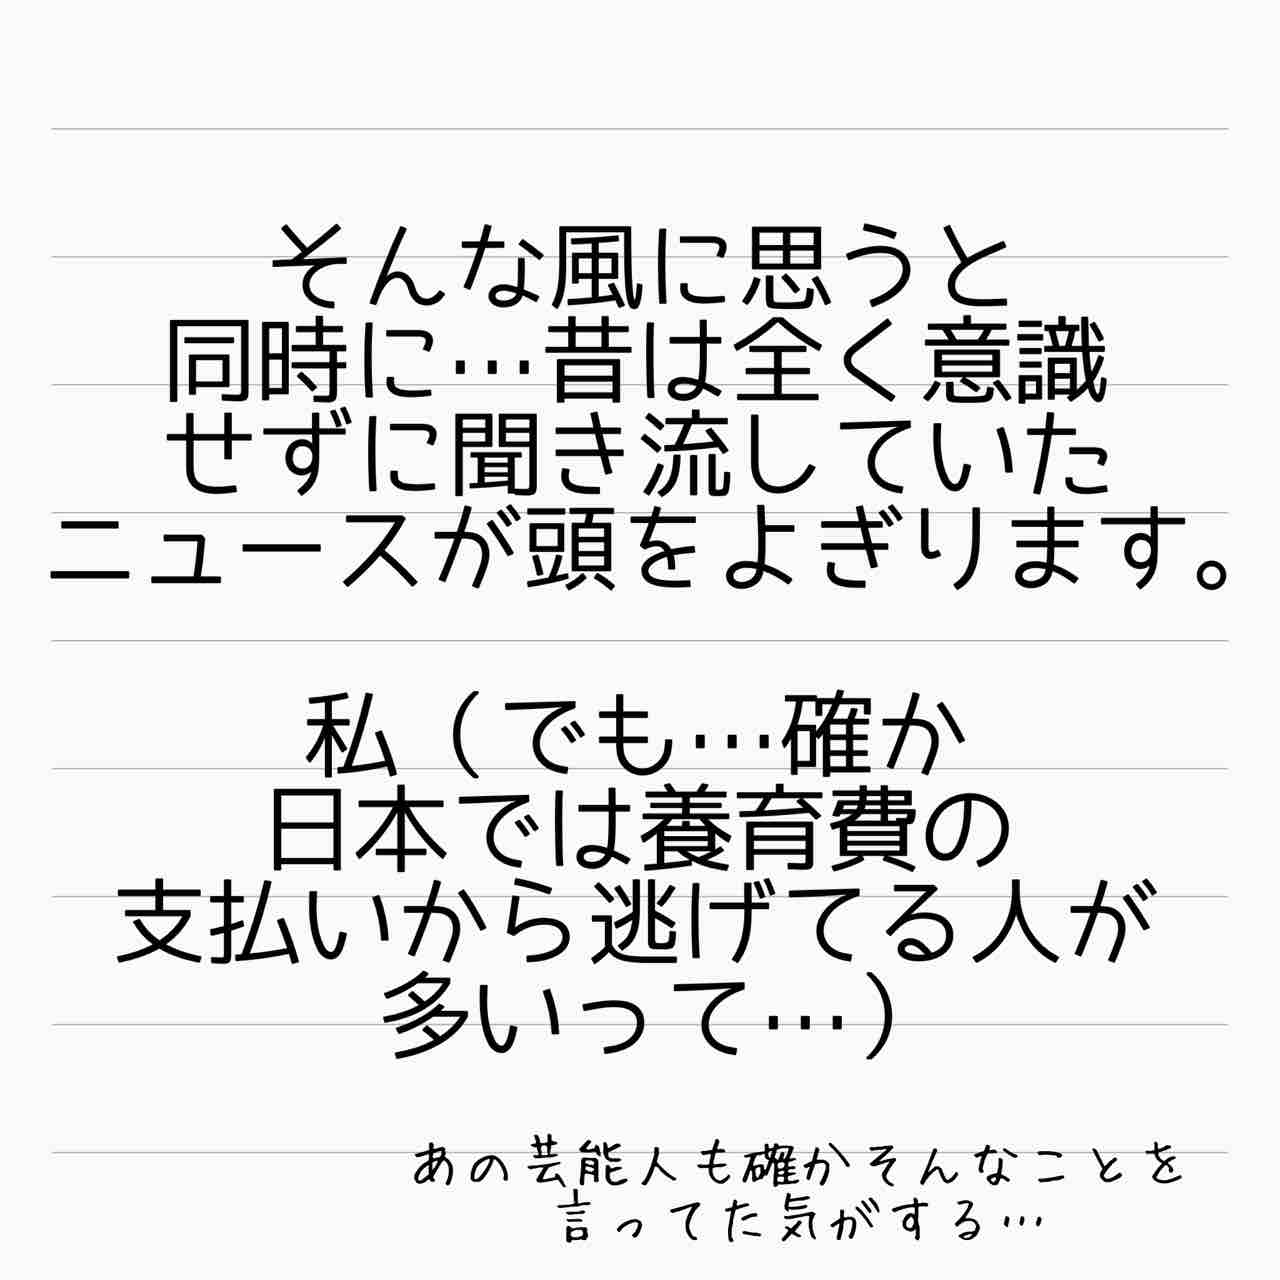 そんな風に思うと
同時に…昔は全く意識
せずに聞き流していた
ニュースが頭をよぎります。
私（でも…確か
日本では養育費の
支払いから逃げてる人が
多いって…）
あの芸能人も確かそんなことを
言ってた気がする…